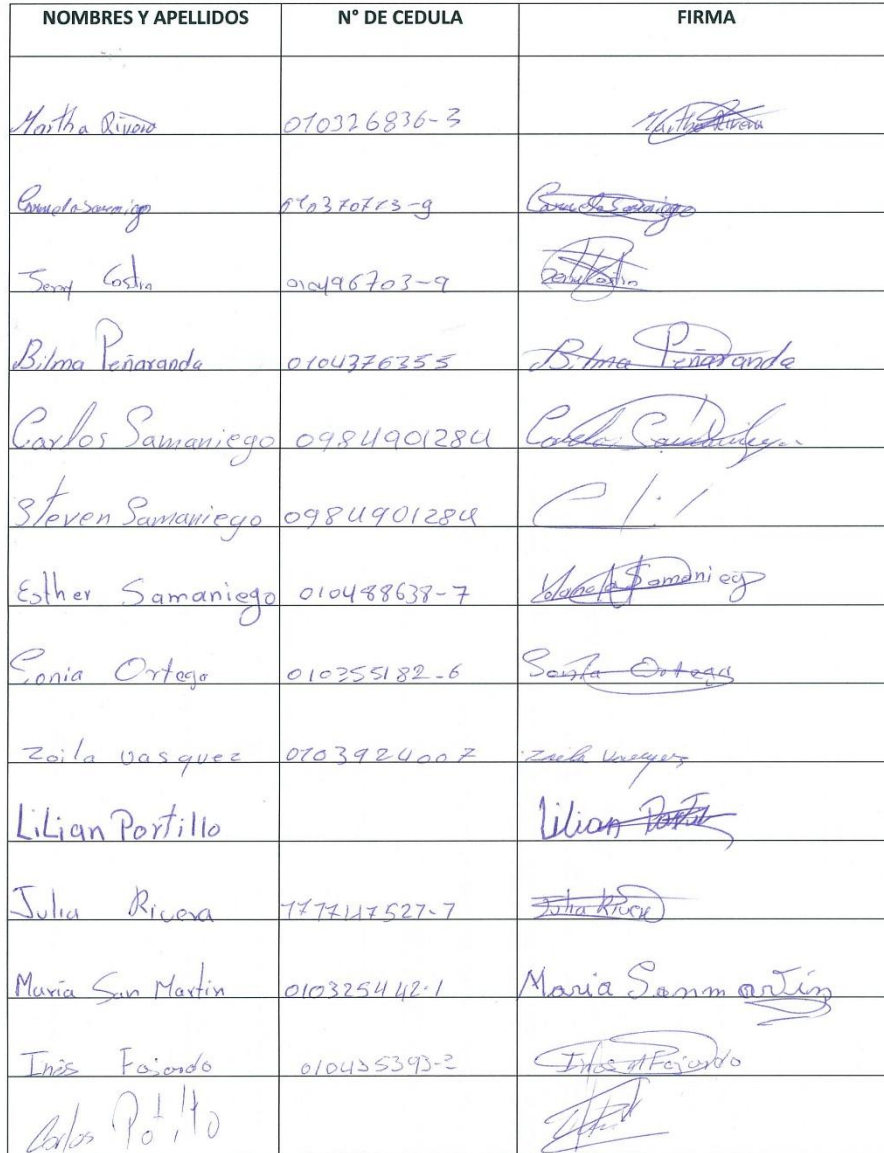 NOMBRES Y APELLIDOS N° DE CEDULA FIRMA
Martha Rivera 010326836-3 Martha Rivera
Samaniego Samaniego
Castro 010496703-9 Castro
Bilma Peñaranda 0104376355 Bilma Peñaranda
Carlos Samaniego 0984901284 Carlos
Steven Samaniego 0984901284
Esther Samaniego 010488638-7 Samaniego
Sonia Ortega 010355182-6 Sonia Ortega
Zoila Vasquez 0103924007 Zoila
LiLian Portillo Lilian
Julia Rivera Julia River
María San Martin 010325442-1 Maria Sanmartín
Inés Fajardo 010435393-2 Fajardo
Carlos